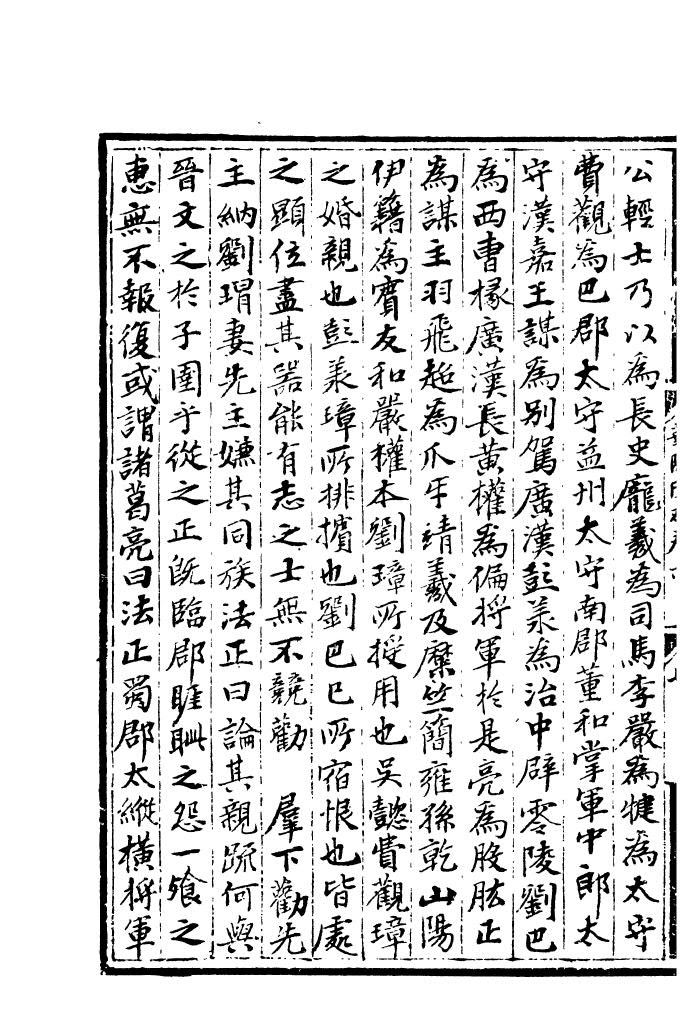 公輕士乃以為長史龐羲為司馬李嚴為犍為太守
費觀為巴郡太守益州太守南郡董和掌軍中郎太
守漢嘉王謀為別駕廣漢彭羕為治中辟零陵劉巴
為西曹掾廣漢長黃權為偏將軍於是亮為股肱正
為謀主羽飛超為爪牙靖羲及糜竺簡雍孫乾山陽
伊籍為賓友和嚴權本劉璋所授用也吳懿費觀璋
之婚親也彭羕璋所排擯也劉巴已所宿恨也皆處
之顯位盡其器能有志之士無不競勸　羣下勸先
主納劉瑁妻先主嫌其同族法正曰論其親疏何與
晉文之於子圉乎從之正既臨郡睚眦之怨一飱之
惠無不報復或謂諸葛亮曰法正蜀郡太縱橫將軍